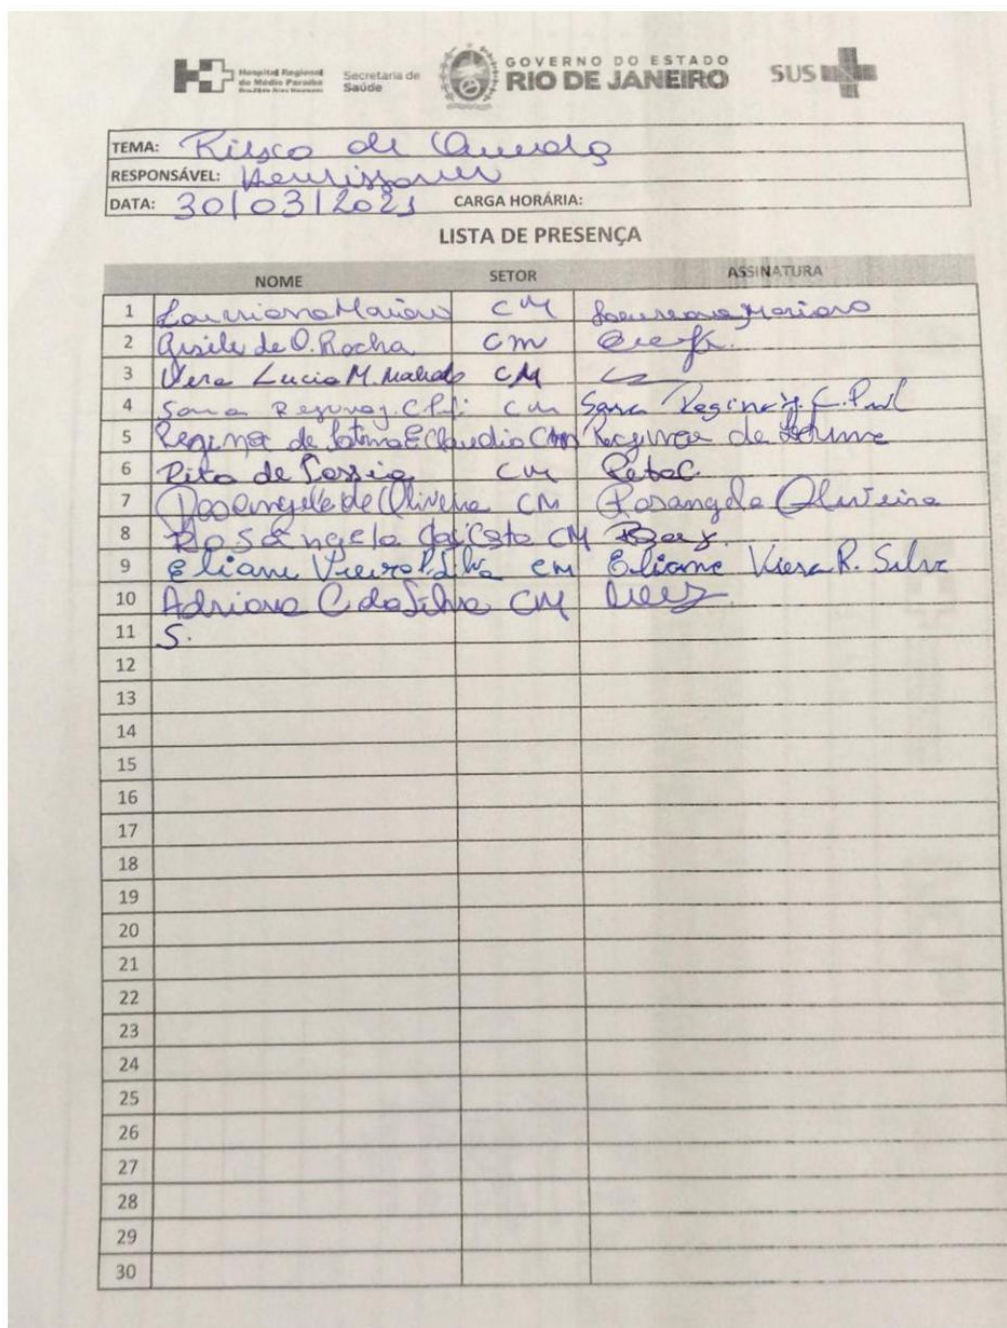 Hospital Regional
do Médio Paraíba
Secretaria de
Saúde
GOVERNO DO ESTADO
RIO DE JANEIRO
SUS
TEMA: Risco de Queda
RESPONSÁVEL:
DATA: 30/03/2021 CARGA HORÁRIA:
LISTA DE PRESENÇA
NOME SETOR ASSINATURA
1 CM
2 de O. Rocha CM
3 Vera Lucia M. CM
4 Sara CM Sara Regina
5 Regina de Claudio CM Regina de
6 Rita de Cassia CM
7 Rosangela de Oliveira CM Rosangela Oliveira
8 Rosangela da Costa CM
9 Eliane Vieira CM Eliane Viera R. Silva
10 Adriana C. da Silva CM
11 S.
12
13
14
15
16
17
18
19
20
21
22
23
24
25
26
27
28
29
30